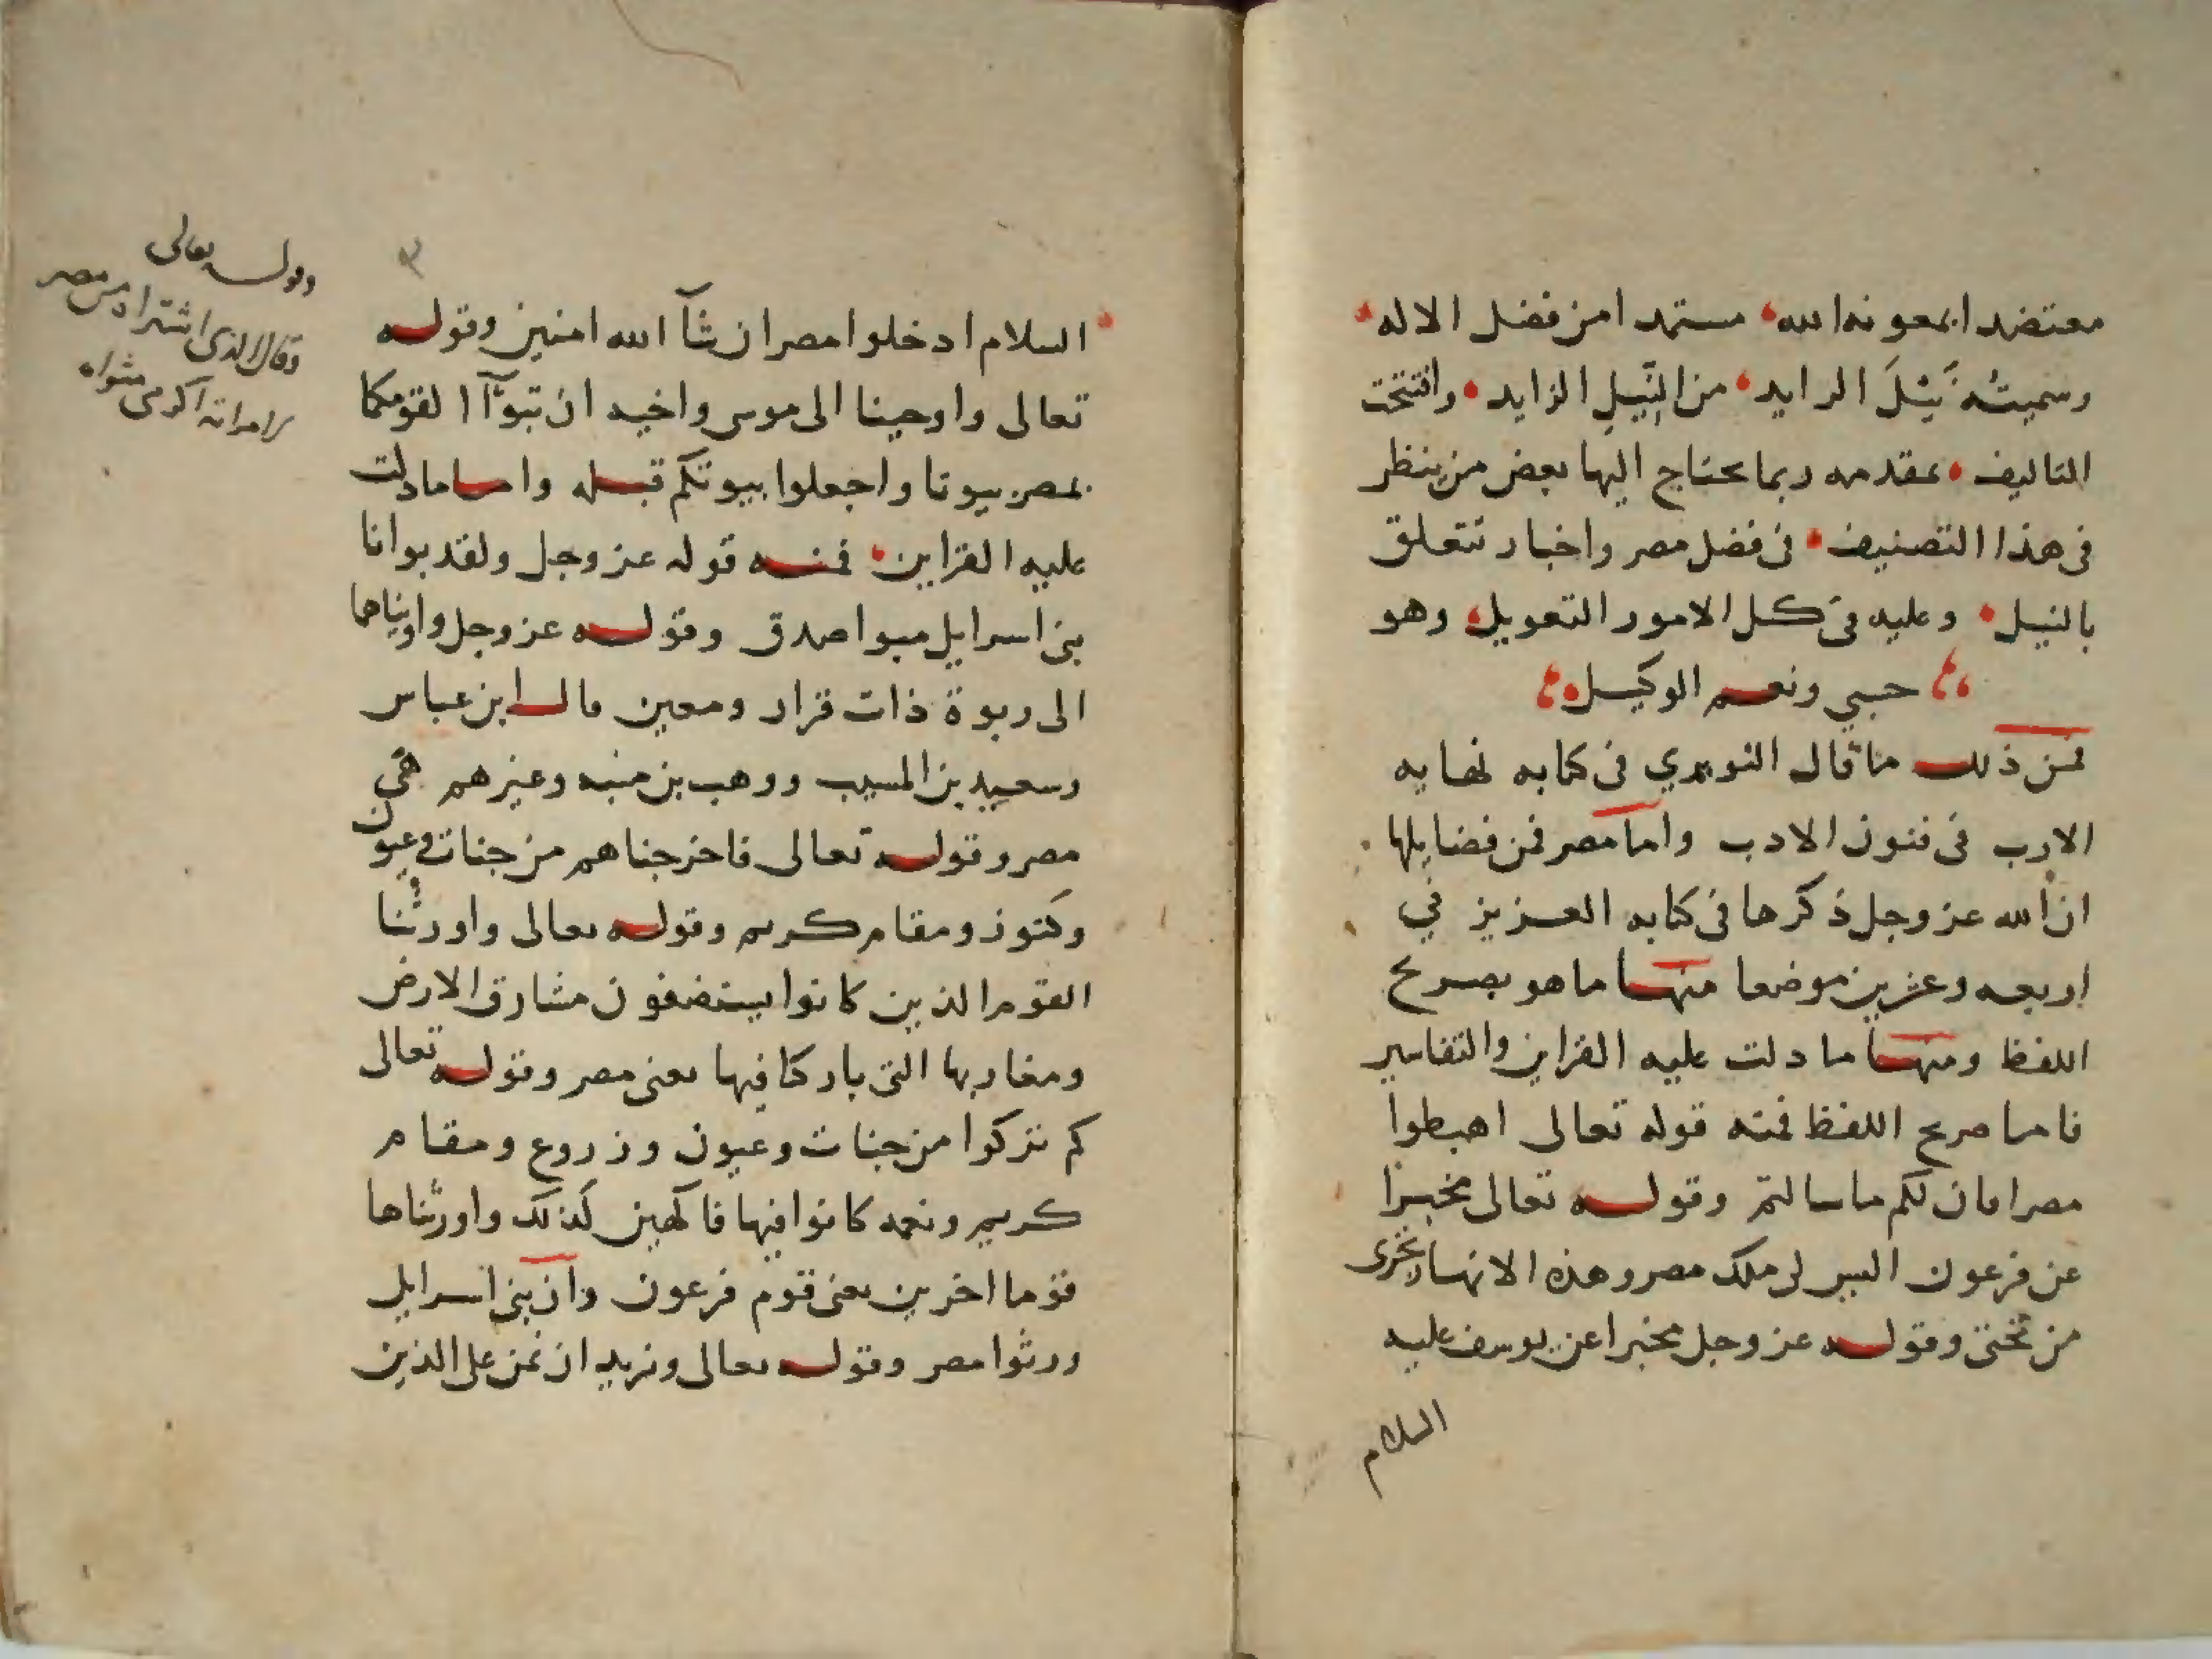 معتضدا بمعونة الله مستمدا من فضل الاله
وسميته نَيْلَ الرايد من النِّيلِ الزايد وافتتحت
التاليف بمقدمه ربما يحتاج اليها بعض من ينظر
فى هذا التصنيف فى فضل مصر واخبار تتعلق
بالنيل وعليه فى كل الامور التعويل وهو
حسبي ونعم الوكيل
فمن ذلك ما قال النويري فى كتابه نهايه
الارب فى فنون الادب واما مصر فمن فضايلها
ان الله عز وجل ذكرها فى كتابه العزيز في
اربعه وعشرين موضعا منها ما هو بصريح
اللفظ ومنها ما دلت عليه القراين والتفاسير
فاما صريح اللفظ فمنه قوله تعالى اهبطوا
مصرا فان لكم ما سالتم وقوله تعالى مخبرا
عن فرعون اليس لى ملك مصر وهذه الانهار تجرى
من تحتى وقوله عز وجل مخبرا عن يوسف عليه
السلام
السلام ادخلوا مصر ان شآ الله امنين وقوله
تعالى واوحينا الى موسى واخيه ان تبوّآ لقومكما
بمصر بيوتا واجعلوا بيوتكم قبله واما ما دلت
عليه القراين فمنه قوله عز وجل ولقد بوانا
بنى اسرايل مبوا صدق وقوله عز وجل واويناهما
الى ربوة ذات قرار ومعين قال ابن عباس
وسعيد بن المسيب ووهب بن منبه وغيرهم هي
مصر وقوله تعالى فاخرجناهم من جنات وعيون
وكنوز ومقام كريم وقوله تعالى واورثنا
القوم الذين كانوا يستضعفون مشارق الارض
ومغاربها التى باركنا فيها يعنى مصر وقوله تعالى
كم تركوا من جنات وعيون وزروع ومقام
كريم ونعمه كانوا فيها فاكهين كذلك واورثناها
قوما اخرين يعنى قوم فرعون وان بنى اسرايل
ورثوا مصر وقوله تعالى ونريد ان نمن على الذين
وقوله تعالى
وقال الذى اشتراه من مصر
لامراته اكرمى مثواه